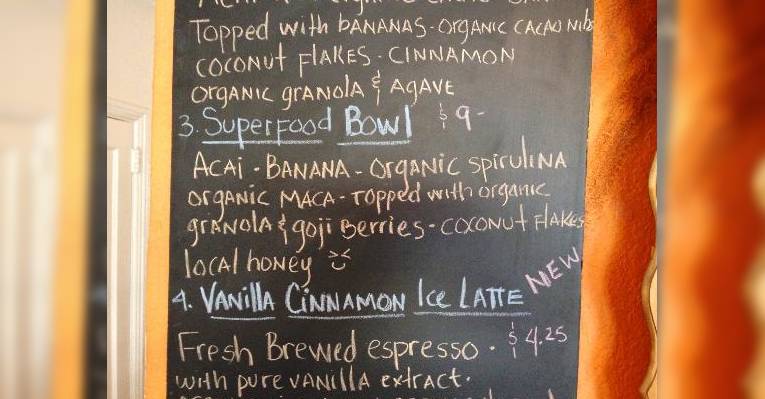 Topped with BANANAS - ORGANIC CACAO NIBS
COCONUT FLAKES - CINNAMON
ORGANIC granola & AGAVE
3. Superfood Bowl $9-
ACAI - BANANA - ORGANIC SpiruliNA
ORGANIC MACA - TOPPED with organic
granola & goji Berries - COCONUT FLAKES
local honey
NEW
4. VANillA CINNAMON Ice LATTE
Fresh Brewed espresso. $4.25
with pure VANillA extract.